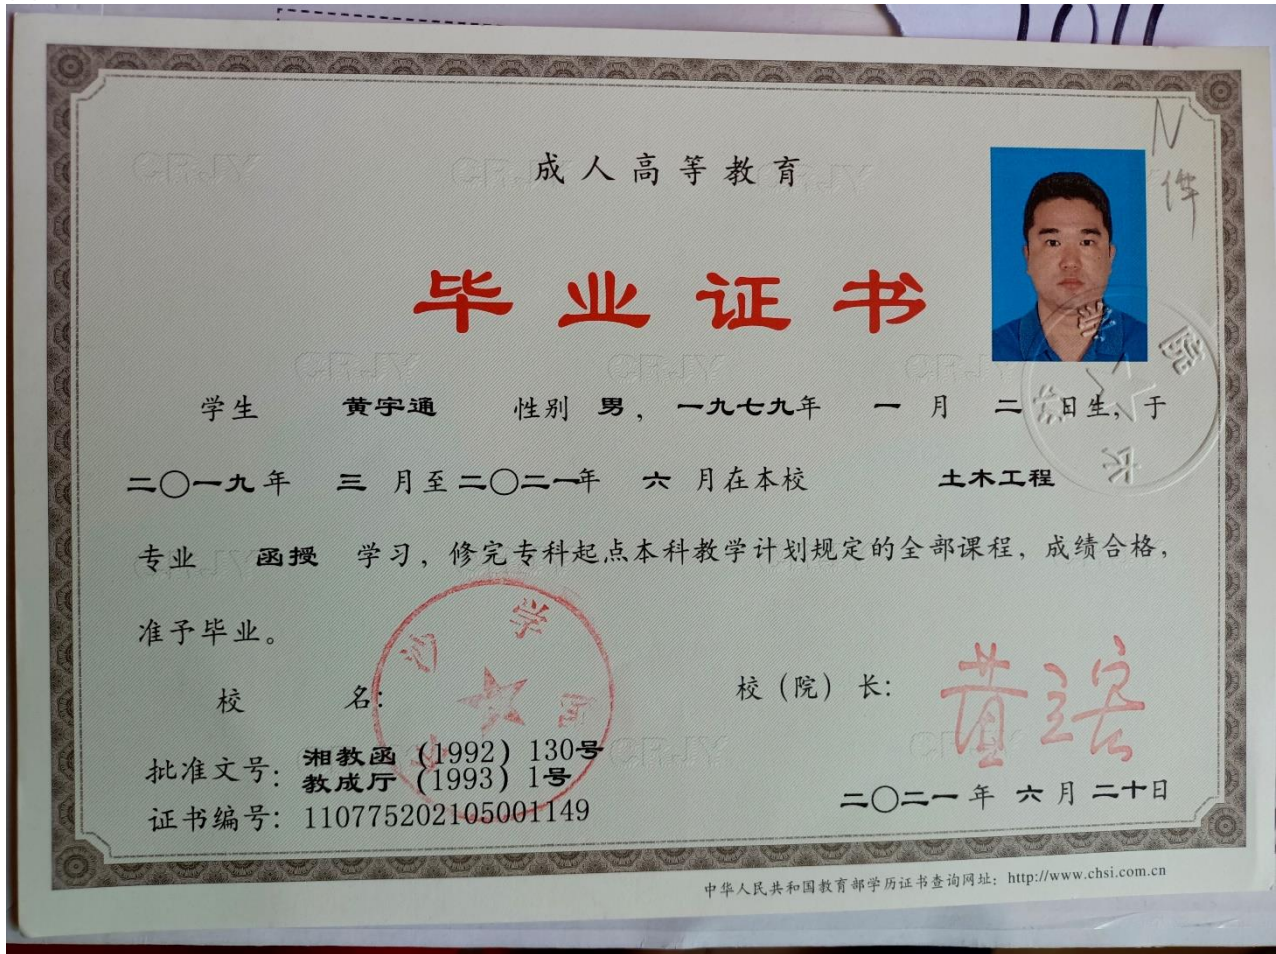 2011
N
件
成人高等教育
毕业证书
学生 黄宇通 性别 男，一九七九年 一 月 二 日生，于
二〇一九年 三 月至二〇二一年 六 月在本校 土木工程
专业 函授 学习，修完专科起点本科教学计划规定的全部课程，成绩合格，
准予毕业。
校 名：
校（院）长：
批准文号：湘教函（1992）130号
教成厅（1993）1号
证书编号：110775202105001149
二〇二一年 六 月 二十日
中华人民共和国教育部学历证书查询网址：http://www.chsi.com.cn
长沙学院
CRJY